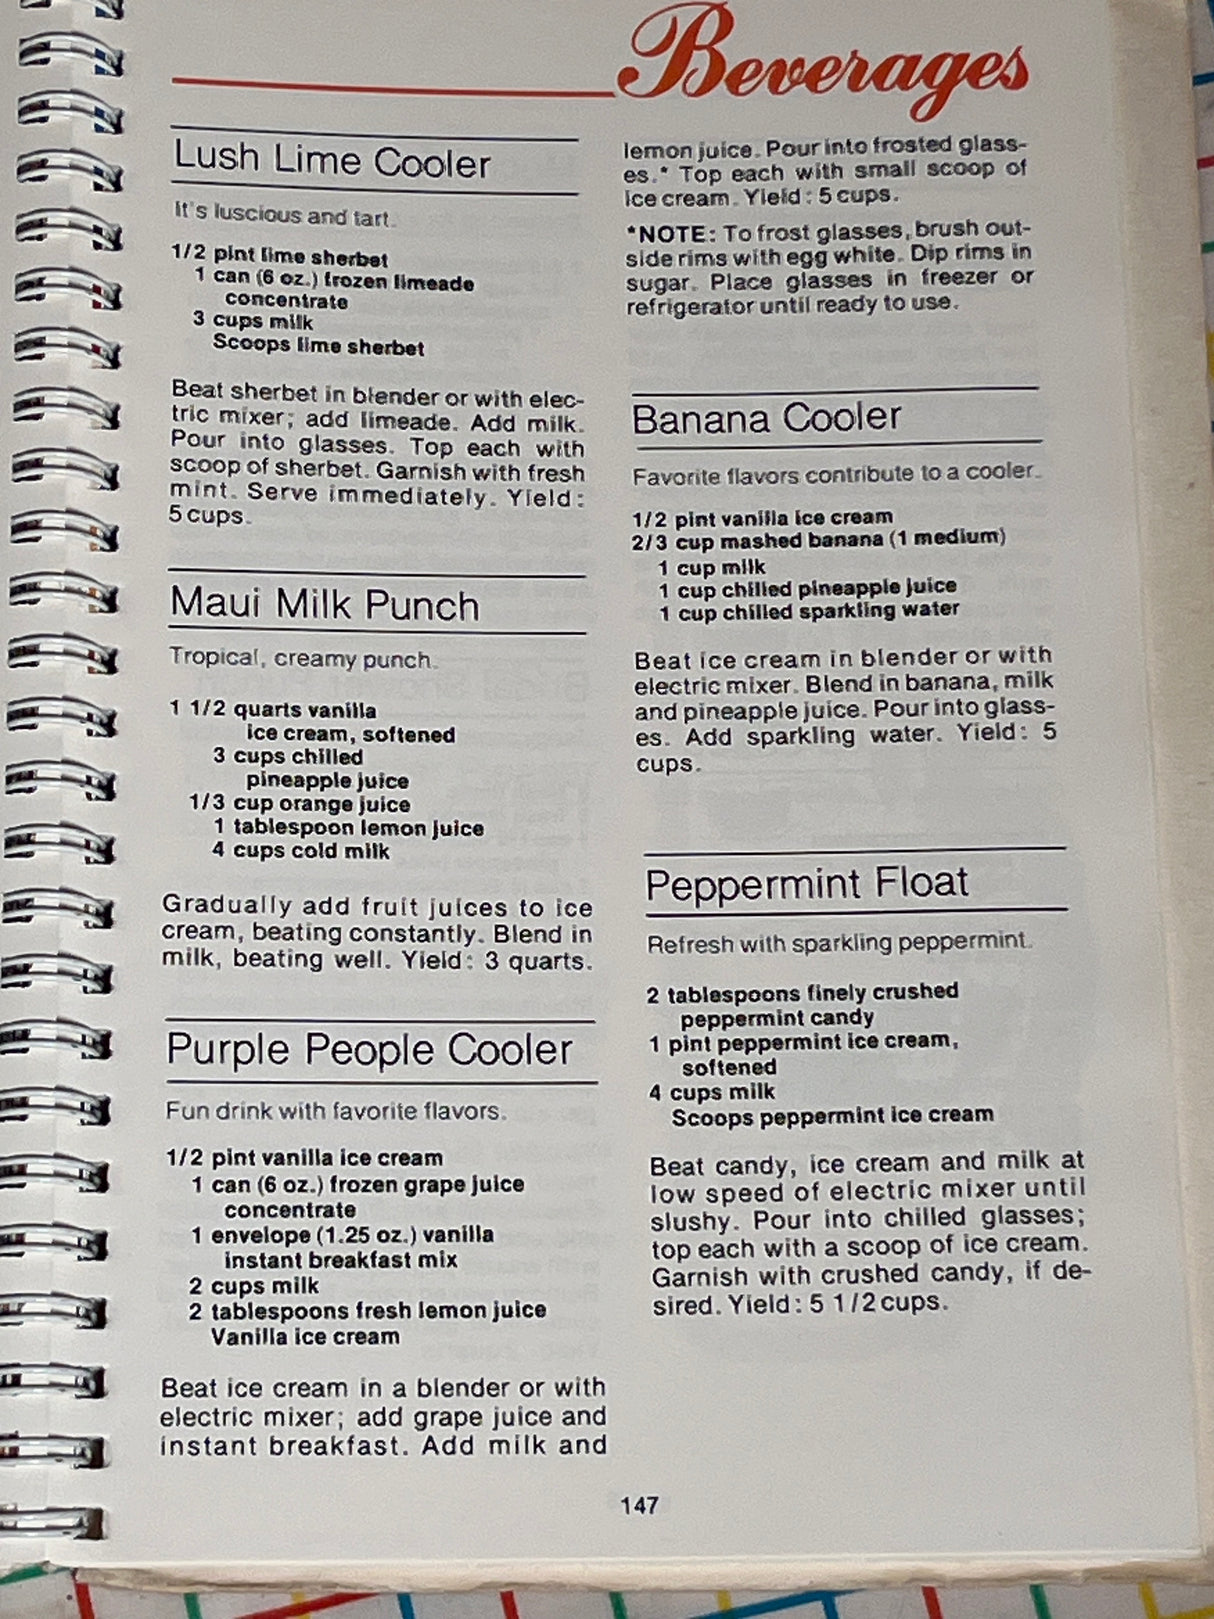 Beverages
Lush Lime Cooler
It's luscious and tart.
1/2 pint lime sherbet
1 can (6 oz.) frozen limeade
concentrate
3 cups milk
Scoops lime sherbet
Beat sherbet in blender or with elec-
tric mixer; add limeade. Add milk.
Pour into glasses. Top each with
scoop of sherbet. Garnish with fresh
mint. Serve immediately. Yield:
5 cups.
Maui Milk Punch
Tropical, creamy punch.
1 1/2 quarts vanilla
ice cream, softened
3 cups chilled
pineapple juice
1/3 cup orange juice
1 tablespoon lemon juice
4 cups cold milk
Gradually add fruit juices to ice
cream, beating constantly. Blend in
milk, beating well. Yield: 3 quarts.
Purple People Cooler
Fun drink with favorite flavors.
1/2 pint vanilla ice cream
1 can (6 oz.) frozen grape juice
concentrate
1 envelope (1.25 oz.) vanilla
instant breakfast mix
2 cups milk
2 tablespoons fresh lemon juice
Vanilla ice cream
Beat ice cream in a blender or with
electric mixer; add grape juice and
instant breakfast. Add milk and
lemon juice. Pour into frosted glass-
es.* Top each with small scoop of
ice cream. Yield: 5 cups.
*NOTE: To frost glasses, brush out-
side rims with egg white. Dip rims in
sugar. Place glasses in freezer or
refrigerator until ready to use.
Banana Cooler
Favorite flavors contribute to a cooler.
1/2 pint vanilla ice cream
2/3 cup mashed banana (1 medium)
1 cup milk
1 cup chilled pineapple juice
1 cup chilled sparkling water
Beat ice cream in blender or with
electric mixer. Blend in banana, milk
and pineapple juice. Pour into glass-
es. Add sparkling water. Yield: 5
cups.
Peppermint Float
Refresh with sparkling peppermint.
2 tablespoons finely crushed
peppermint candy
1 pint peppermint ice cream,
softened
4 cups milk
Scoops peppermint ice cream
Beat candy, ice cream and milk at
low speed of electric mixer until
slushy. Pour into chilled glasses;
top each with a scoop of ice cream.
Garnish with crushed candy, if de-
sired. Yield: 5 1/2 cups.
147